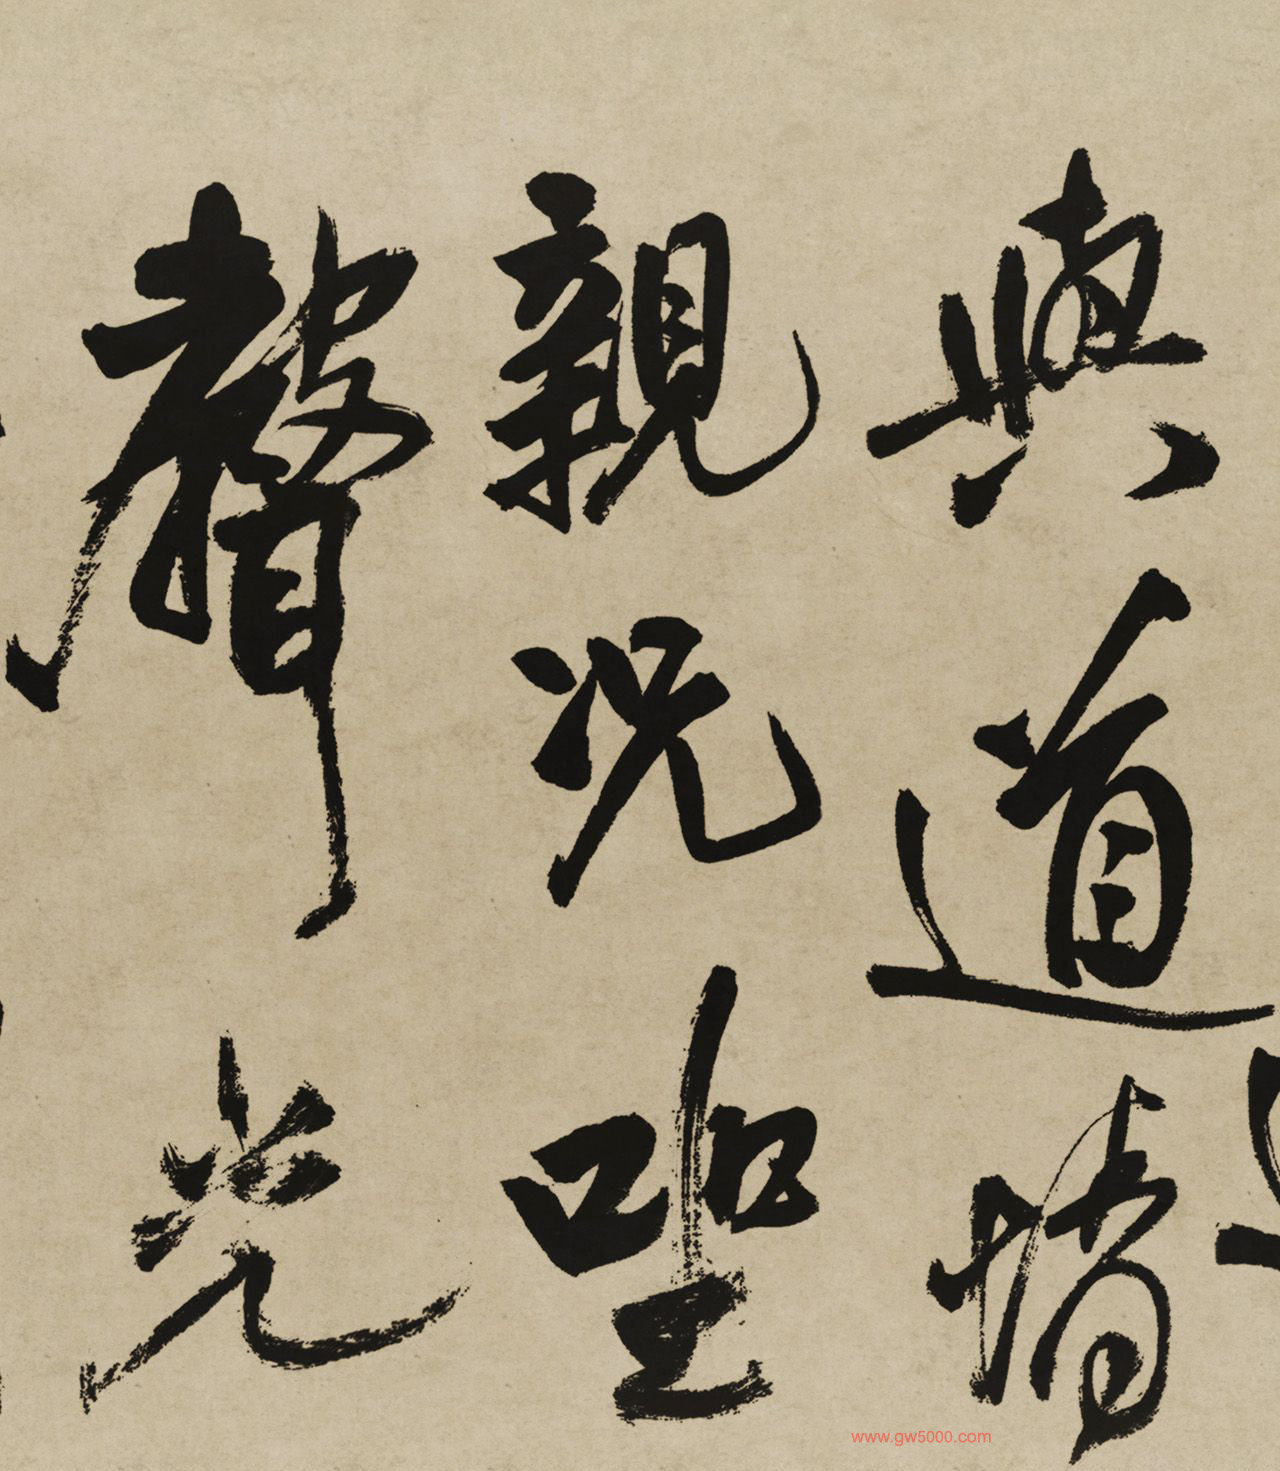 與道情
親况坐
聲光
www.gw5000.com